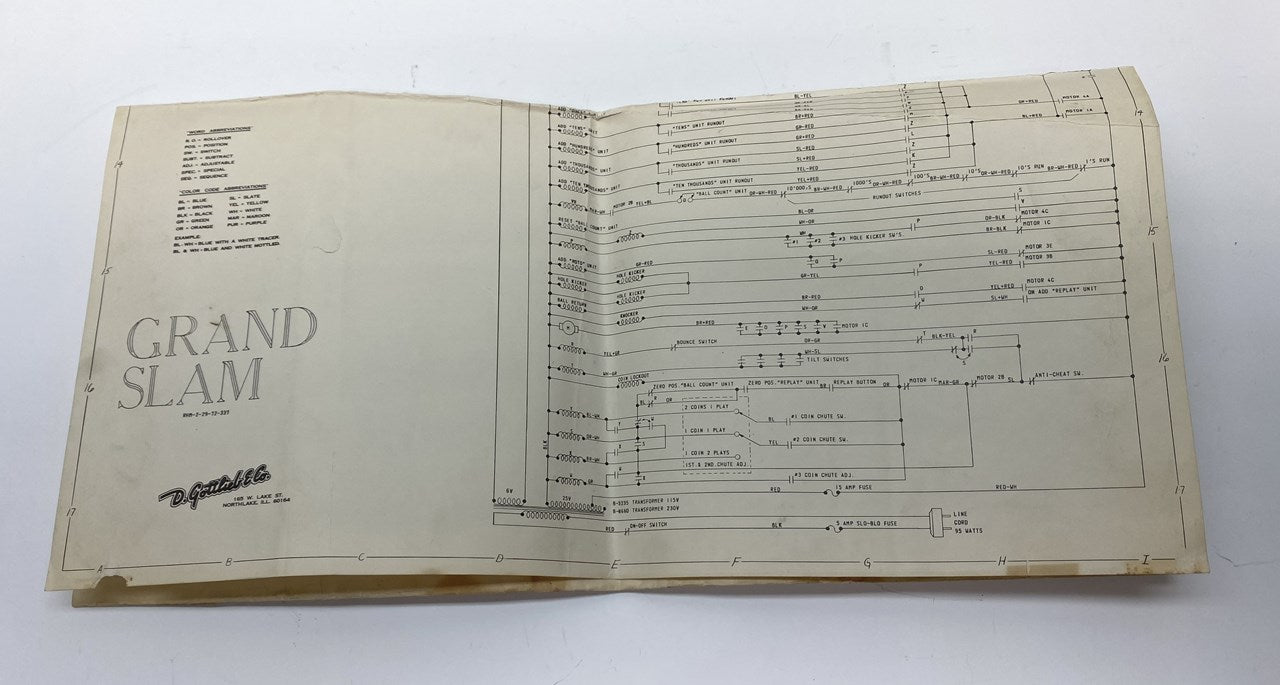 "WORD ABBREVIATIONS"
R.O. - ROLLOVER
POS. - POSITION
SW. - SWITCH
SUBT. - SUBTRACT
ADJ. - ADJUSTABLE
SPEC. - SPECIAL
SEQ. - SEQUENCE
"COLOR CODE ABBREVIATIONS"
BL - BLUE SL - SLATE
BR - BROWN YEL - YELLOW
BLK - BLACK WH - WHITE
GR - GREEN MAR - MAROON
OR - ORANGE PUR - PURPLE
EXAMPLE:
BL-WH - BLUE WITH A WHITE TRACER.
BL & WH - BLUE AND WHITE MOTTLED.
GRAND
SLAM
RHM-2-29-72-337
D. Gottlieb & Co.
165 W. LAKE ST.
NORTHLAKE, ILL. 60164
14
15
16
17
A B C D E F G H I
14
15
16
17
BL-YEL
MOTOR 4A
GR+RED
MOTOR 1A
BL-RED
ADD "TENS" UNIT
"TENS" UNIT RUNOUT
BR+RED
GR-RED
ADD "HUNDREDS" UNIT
"HUNDREDS" UNIT RUNOUT
GR+RED
SL-RED
ADD "THOUSANDS" UNIT
"THOUSANDS" UNIT RUNOUT
SL+RED
YEL-RED
ADD "TEN THOUSANDS" UNIT
"TEN THOUSANDS" UNIT RUNOUT
YEL+RED
MOTOR 2B
YEL+BL
"BALL COUNT" UNIT
OR-WH-RED
10'000'S
BR-WH-RED
1000'S
OR-WH-RED
100'S
BR-WH-RED
10'S
OR-WH-RED
10'S RUN
BR-WH-RED
1'S RUN
RUNOUT SWITCHES
RESET "BALL COUNT" UNIT
BL-OR
WH-OR
P
OR-BLK
MOTOR 4C
WH
#1 #2 #3 HOLE KICKER SW'S.
BR-BLK
MOTOR 1C
ADD "MOTO" UNIT
GR-RED
SL-RED
MOTOR 3E
HOLE KICKER
HOLE KICKER
GR-YEL
P
YEL-RED
MOTOR 3B
HOLE KICKER
BR-RED
YEL+RED
MOTOR 4C
BALL RETURN
KNOCKER
WH-OR
SL+WH
ON ADD "REPLAY" UNIT
M
BR+RED
E O P S V MOTOR 1C
YEL+GR
BOUNCE SWITCH
OR-GR
T
BLK-YEL
R
WH-GR
WH-SL
TILT SWITCHES
S
COIN LOCKOUT
ZERO POS. "BALL COUNT" UNIT
ZERO POS. "REPLAY" UNIT
BR
REPLAY BUTTON
OR
MOTOR 1C
MAR-GR
MOTOR 2B
SL
ANTI-CHEAT SW.
BL
R
OR
BL-WH
2 COINS 1 PLAY
BL
#1 COIN CHUTE SW.
OR-WH
1 COIN 1 PLAY
YEL
#2 COIN CHUTE SW.
BR-WH
1 COIN 2 PLAYS
1ST. & 2ND. CHUTE ADJ.
GR
#3 COIN CHUTE ADJ.
BLK
6V
25V
RED
15 AMP FUSE
RED-WH
B-5335 TRANSFORMER 115V
B-6660 TRANSFORMER 230V
RED
ON-OFF SWITCH
BLK
5 AMP SLO-BLO FUSE
LINE
CORD
95 WATTS